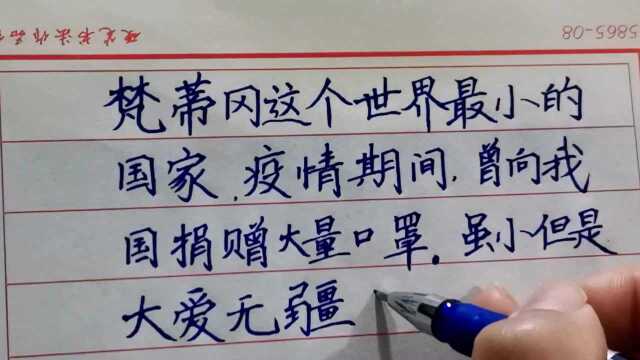 梵蒂冈这个世界最小的
国家,疫情期间,曾向我
国捐赠大量口罩。虽小但是
大爱无疆
5865-08